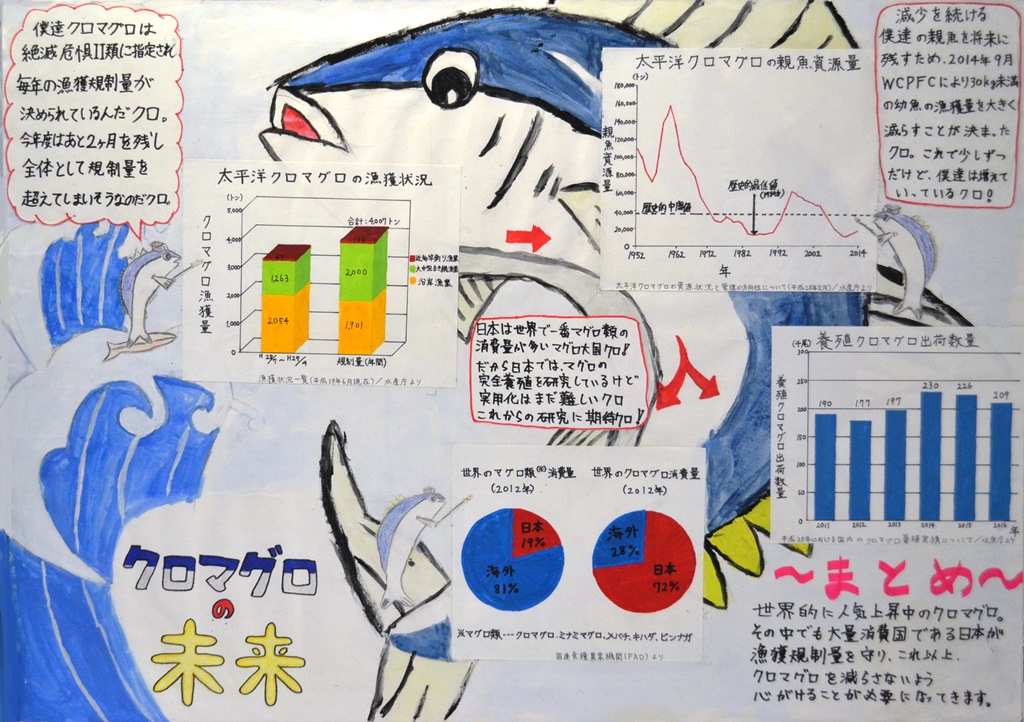 僕達クロマグロは
絶滅危惧II類に指定され
毎年の漁獲規制量が
決められているんだクロ。
今年度はあと2ヶ月を残し
全体として規制量を
超えてしまいそうなのだクロ。
太平洋クロマグロの漁獲状況
(トン)
合計:4,007トン
クロマグロ漁獲量
5,000
4,000
3,000
2,000
1,000
0
1,263
2,054
2,000
1,901
近海竿釣り漁業
大中型まき網漁業
沿岸漁業
規制量(年間)
漁獲状況一覧(平成29年4月現在)/水産庁より
太平洋クロマグロの親魚資源量
(トン)
親魚資源量
180,000
160,000
140,000
120,000
100,000
80,000
60,000
40,000
20,000
0
歴史的中間値
歴史的最低値
(1984年)
1952 1962 1972 1982 1992 2002 2014
年
太平洋クロマグロの資源状況と管理の方向性について(平成28年8月)/水産庁より
減少を続ける
僕達の親魚を将来に
残すため、2014年9月
WCPFCにより30kg未満
の幼魚の漁獲量を大きく
減らすことが決まった
クロ。これで少しずつ
だけど、僕達は増えて
いっているクロ!
日本は世界で一番マグロ類の
消費量が多いマグロ大国クロ!
だから日本では、マグロの
完全養殖を研究しているけど
実用化はまだ難しいクロ
これからの研究に期待クロ!
(千尾)
養殖クロマグロ出荷数量
養殖クロマグロ出荷数量
300
250
200
150
100
50
0
190 177 197 230 226 209
2011 2012 2013 2014 2015 2016 年
平成28年における国内のクロマグロ養殖実績について/水産庁より
世界のマグロ類(※)消費量
(2012年)
日本
19%
海外
81%
世界のクロマグロ消費量
(2012年)
海外
28%
日本
72%
※マグロ類…クロマグロ、ミナミマグロ、メバチ、キハダ、ビンナガ
国連食糧農業機関(FAO)より
クロマグロ
の
未来
〜まとめ〜
世界的に人気上昇中のクロマグロ。
その中でも大量消費国である日本が
漁獲規制量を守り、これ以上、
クロマグロを減らさないよう
心がけることが必要になってきます。